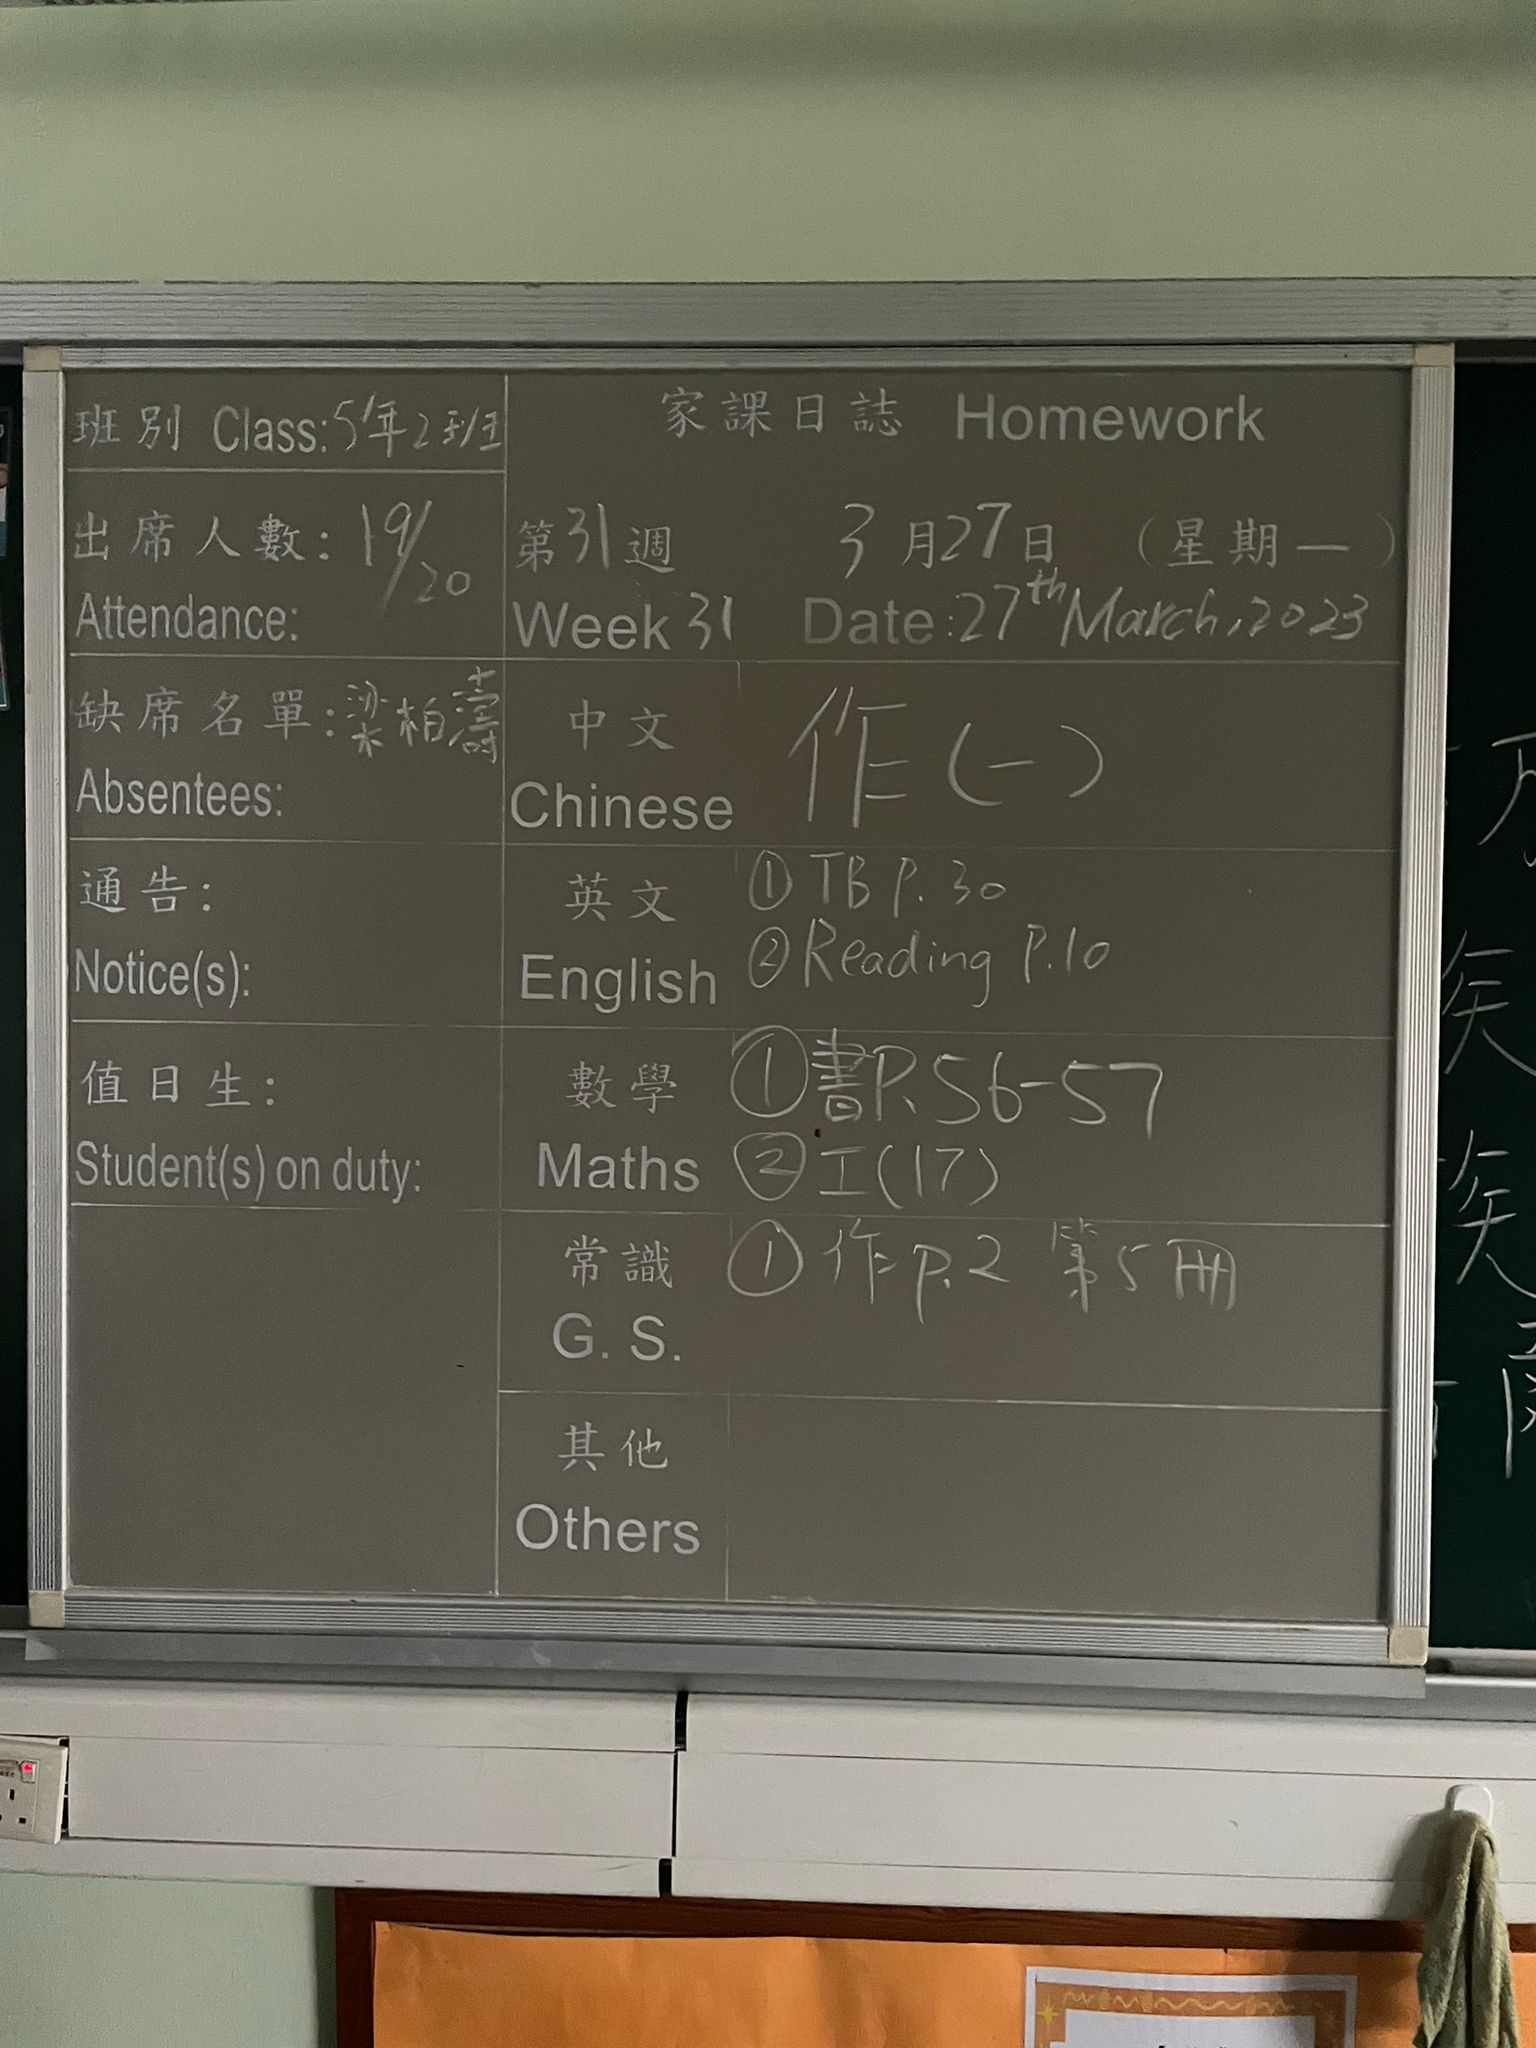 班別 Class: 5年2班
出席人數: 19/20
Attendance:
缺席名單: 梁柏濤
Absentees:
通告:
Notice(s):
值日生:
Student(s) on duty:
家課日誌 Homework
第31週 3月27日 (星期一)
Week 31 Date: 27th March, 2023
中文 作(一)
Chinese
英文 ① TB P. 30
English ② Reading P.10
數學 ① 書P. 56-57
Maths ② 工(17)
常識 ① 作 p.2 第5冊
G. S.
其他
Others